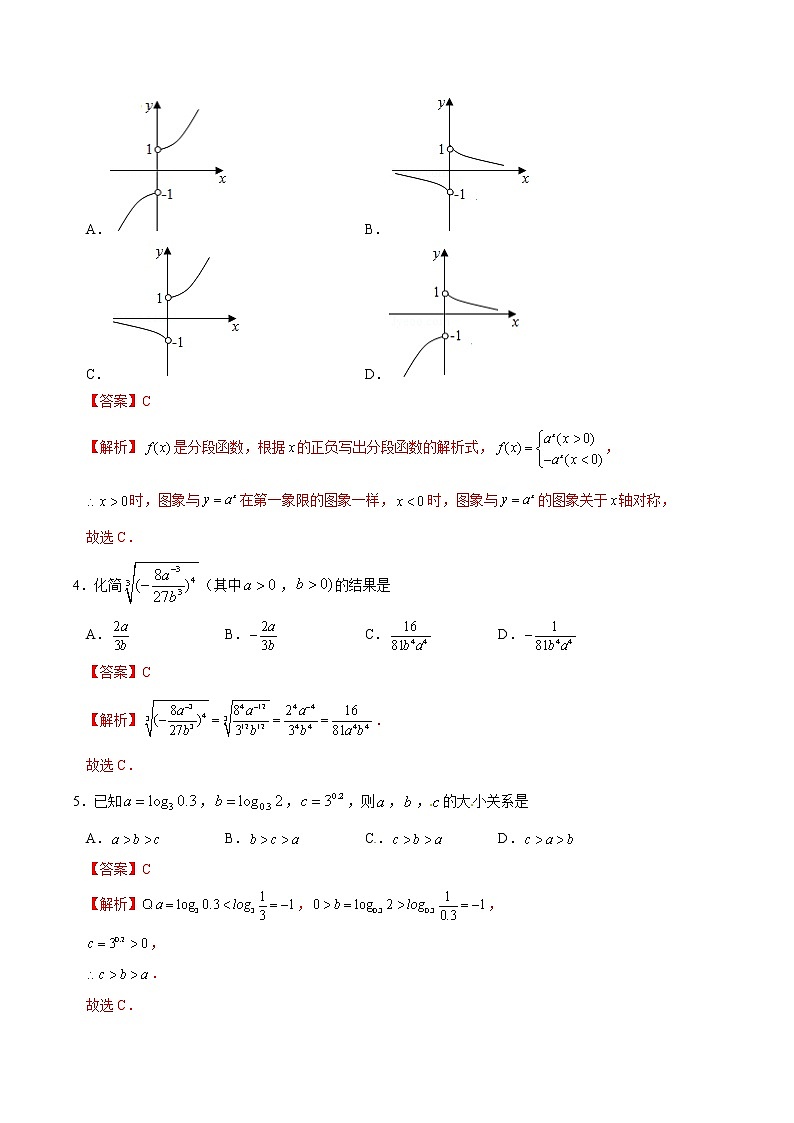 y
1
-1
x
A．
y
1
-1
x
B．
y
1
-1
x
C．
y
1
-1
x
D．
【答案】C
【解析】f(x)是分段函数，根据x的正负写出分段函数的解析式，f(x)={a^x(x>0) -a^x(x<0)，
∴x>0时，图象与y=a^x在第一象限的图象一样，x<0时，图象与y=a^x的图象关于x轴对称，
故选C．
4．化简∛((-8a^{-3}/27b^3)^4)（其中a>0，b>0)的结果是
A．2a/3b B．-2a/3b C．16/81b^4a^4 D．-1/81b^4a^4
【答案】C
【解析】∛((-8a^{-3}/27b^3)^4)=∛(8^4a^{-12}/3^{12}b^{12})=2^4a^{-4}/3^4b^4=16/81a^4b^4．
故选C．
5．已知a=log_3 0.3，b=log_{0.3} 2，c=3^{0.2}，则a，b，c的大小关系是
A．a>b>c B．b>c>a C．c>b>a D．c>a>b
【答案】C
【解析】Q a=log_3 0.3<log_3 1/3=-1，0>b=log_{0.3} 2>log_{0.3} 1/0.3=-1，
c=3^{0.2}>0，
∴c>b>a．
故选C．